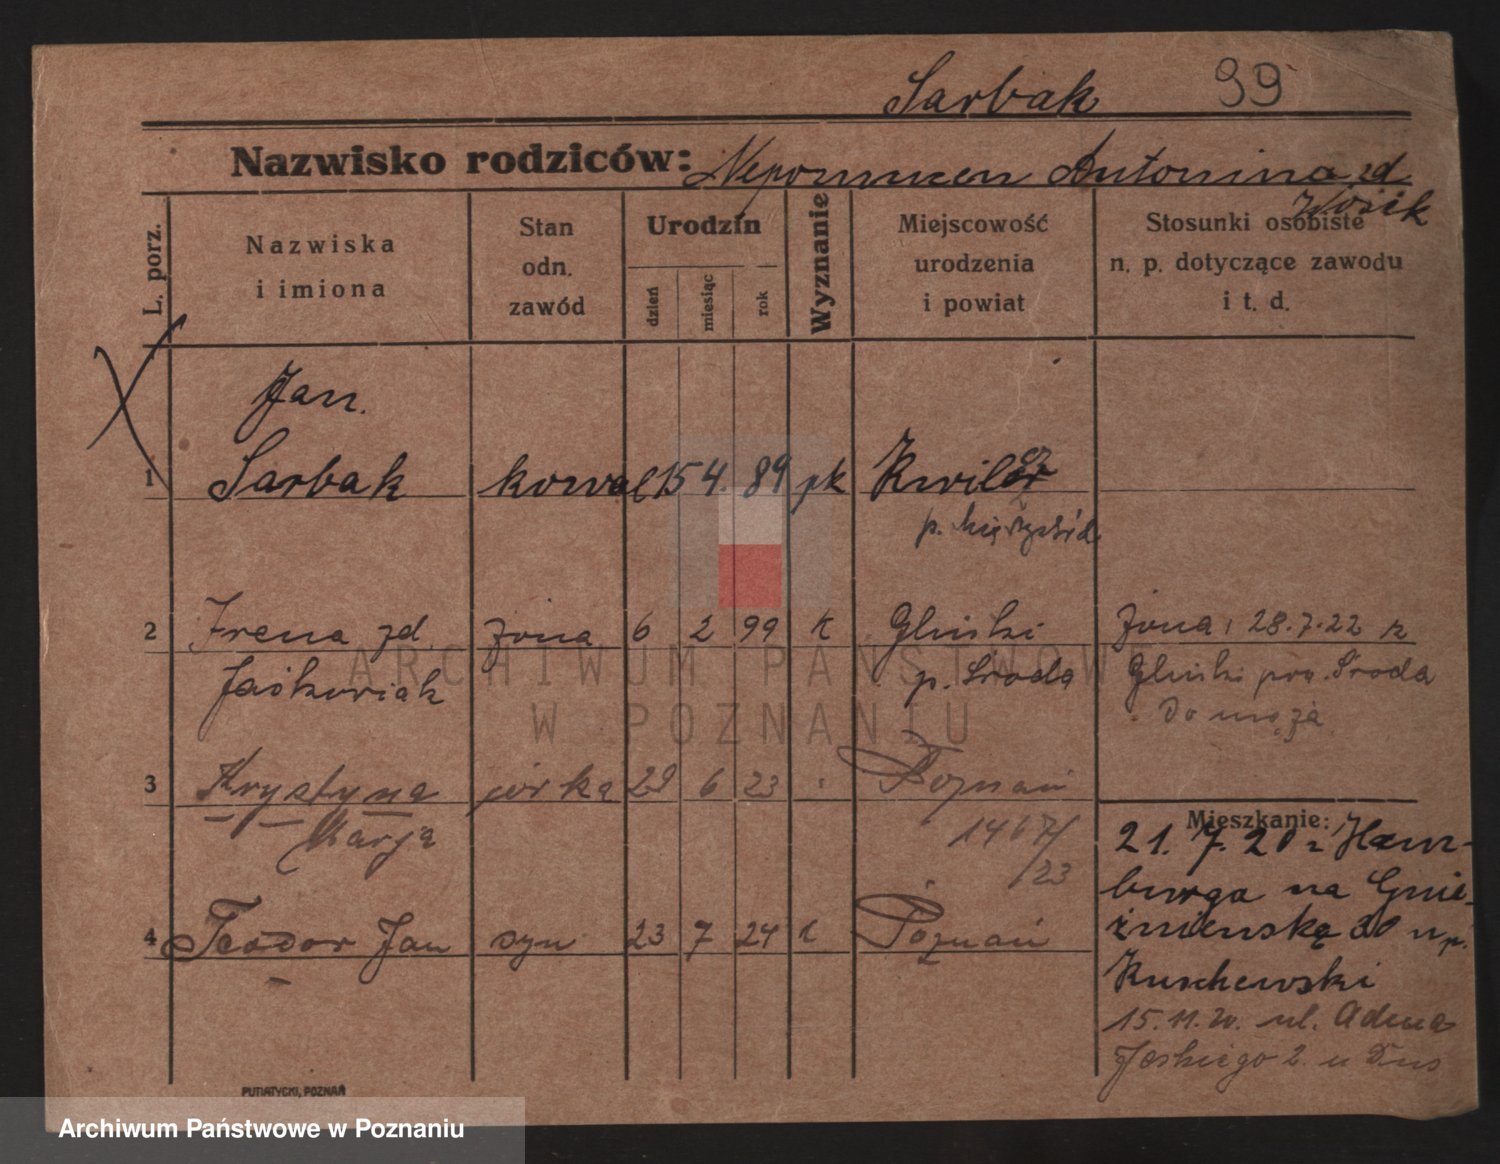 Sarbak 99
Nazwisko rodziców: Nepomucen Antonina zd
Wósik
L. porz.
Nazwiska
i imiona
Stan
odn.
zawód
Urodzin
dzień
miesiąc
rok
Wyznanie
Miejscowość
urodzenia
i powiat
Stosunki osobiste
n. p. dotyczące zawodu
i t. d.
Jan.
1 Sarbak kowal 15 4. 89 rk Kwilcz
p. Międzychód
2 Irena zd. żona 6 2 99 k Głuski Żona, 28.7.22 z
Jaśkowiak p. Środa Głuski pow. Środa
do męża
3 Krystyna córka 29 6 23 Poznań
Marja 1467/
/23
Mieszkanie:
21. 7. 20 z Ham-
burga na Gnie-
4 Teodor Jan syn 23 7 24 k Poznań
źnieńską 30 u p.
Kuschewski
15.11.20. ul. Adama
2. u
PUTIATYCKI, POZNAŃ
ARCHIWUM PAŃSTWOWE
W POZNANIU
Archiwum Państwowe w Poznaniu